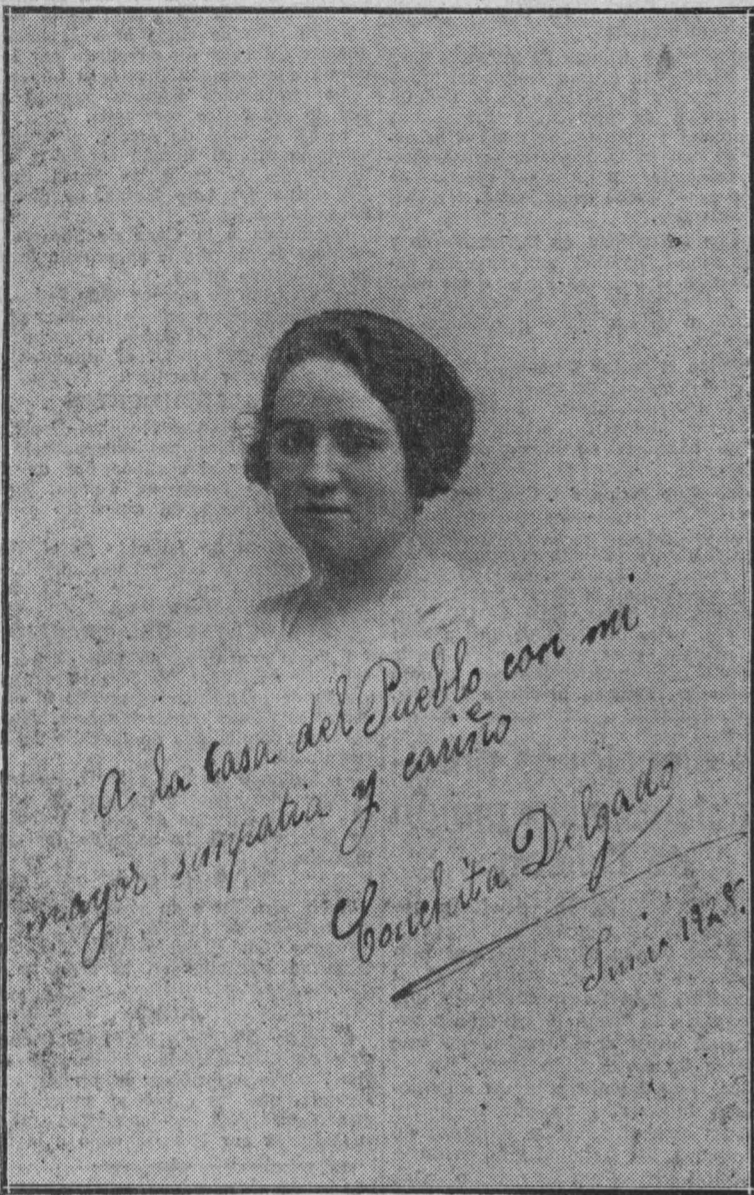 A la Casa del Pueblo con mi
mayor simpatia y cariño
Conchita Delgado
Junio 1925